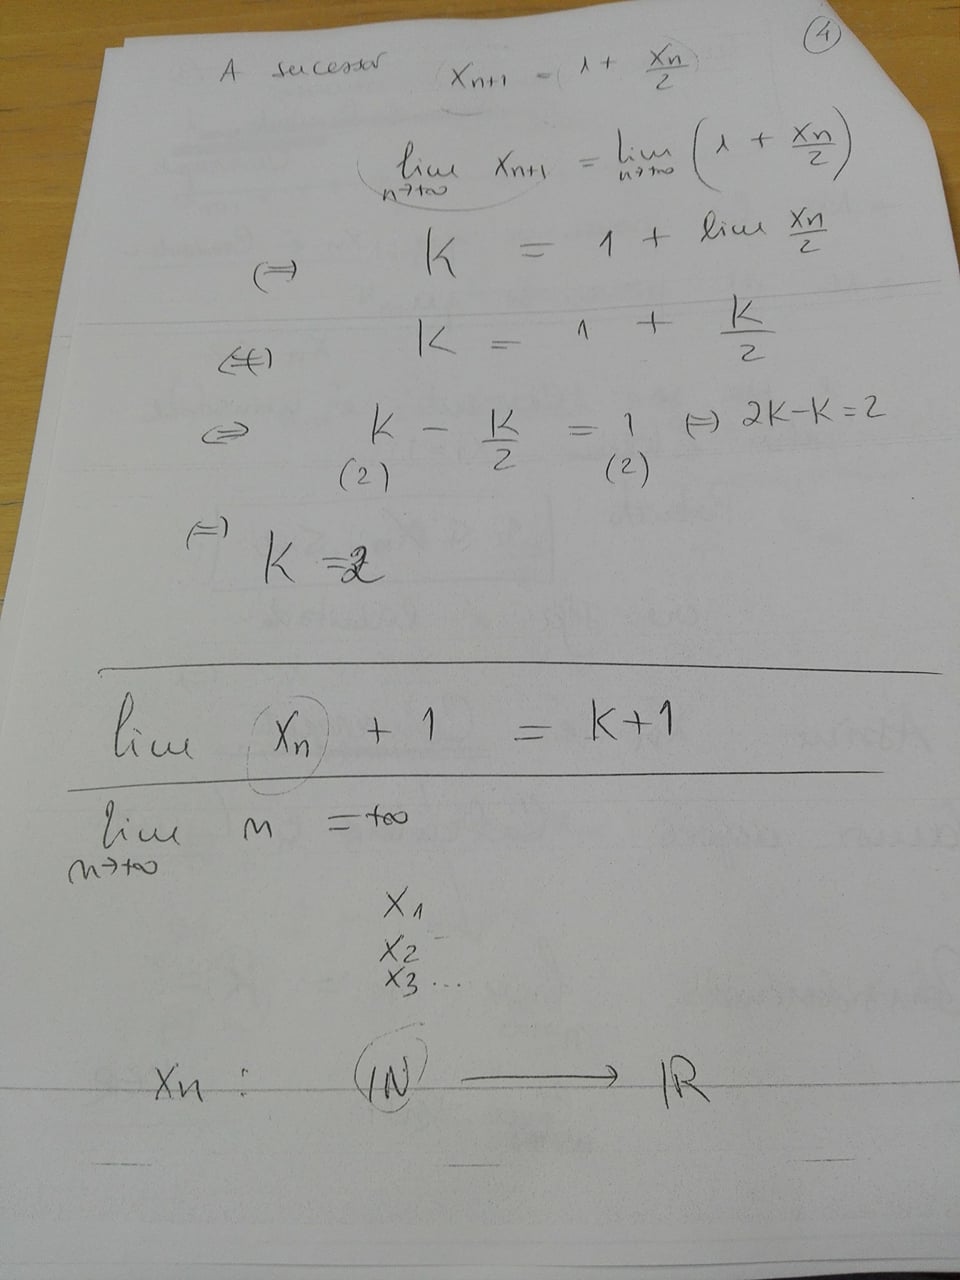 4
A sucessor x_{n+1} = 1 + x_n/2
lim_{n→+∞} x_{n+1} = lim_{n→+∞} (1 + x_n/2)
(=) K = 1 + lim x_n/2
(=) K = 1 + K/2
(=) K - K/2 = 1 (=) 2K-K=2
(2) (2)
(=) K = 2
lim x_n + 1 = K+1
lim_{n→+∞} n = +∞
x_1
x_2
x_3 ...
x_n : ℕ → ℝ